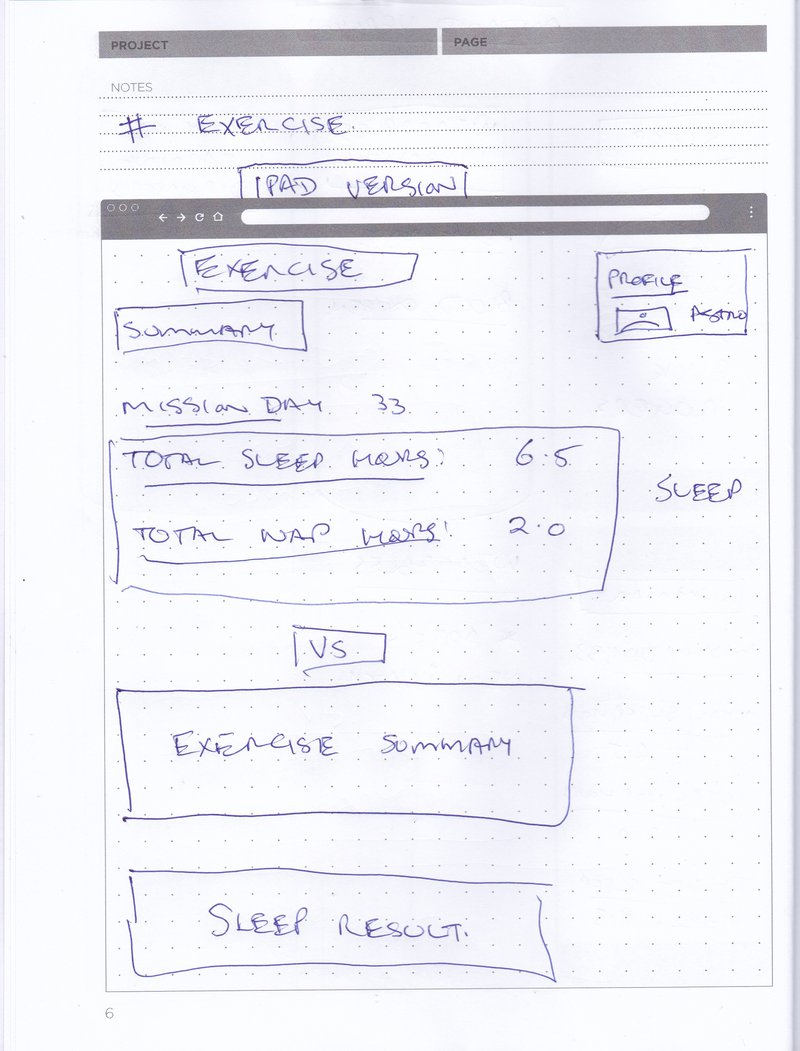 PROJECT PAGE
NOTES
# EXERCISE
IPAD VERSION
EXERCISE
PROFILE
ASTRO
SUMMARY
MISSION DAY 33
TOTAL SLEEP HOURS: 6.5
SLEEP
TOTAL NAP HOURS: 2.0
VS
EXERCISE SUMMARY
SLEEP RESULT.
6